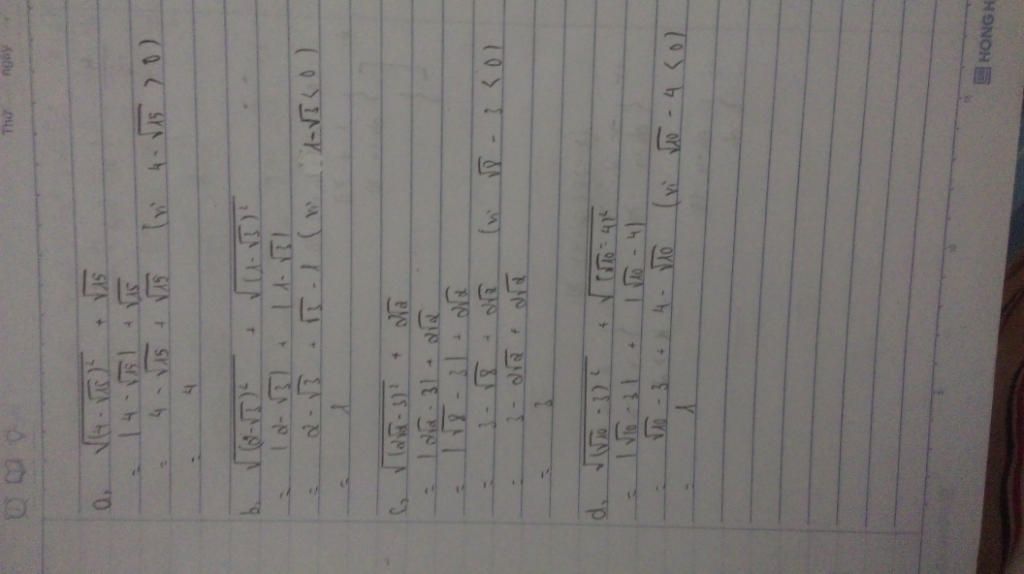 Thứ ngày
a, √(4-√15)² + √15
= |4-√15| + √15
= 4-√15 + √15 (vì 4-√15 > 0)
= 4
b, √(2-√3)² + √(1-√3)²
= |2-√3| + |1-√3|
= 2-√3 + √3-1 (vì 1-√3 < 0)
= 1
c, √(2√2-3)² + 2√2
= |2√2-3| + 2√2
= |√8-3| + 2√2
= 3-√8 + 2√2 (vì √8-3 < 0)
= 3-2√2 + 2√2
= 3
d, √(√10-3)² + √(√10-4)²
= |√10-3| + |√10-4|
= √10-3 + 4-√10 (vì √10-4 < 0)
= 1